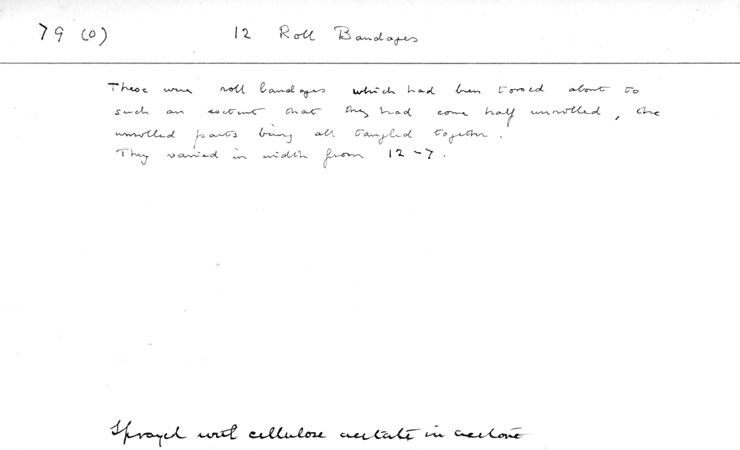 79 (o) 12 Roll Bandages
These were roll bandages which had been tossed about to
such an extent that they had come half unrolled, the
unrolled parts being all tangled together.
They varied in width from 12-7.
Sprayed with cellulose acetate in acetone